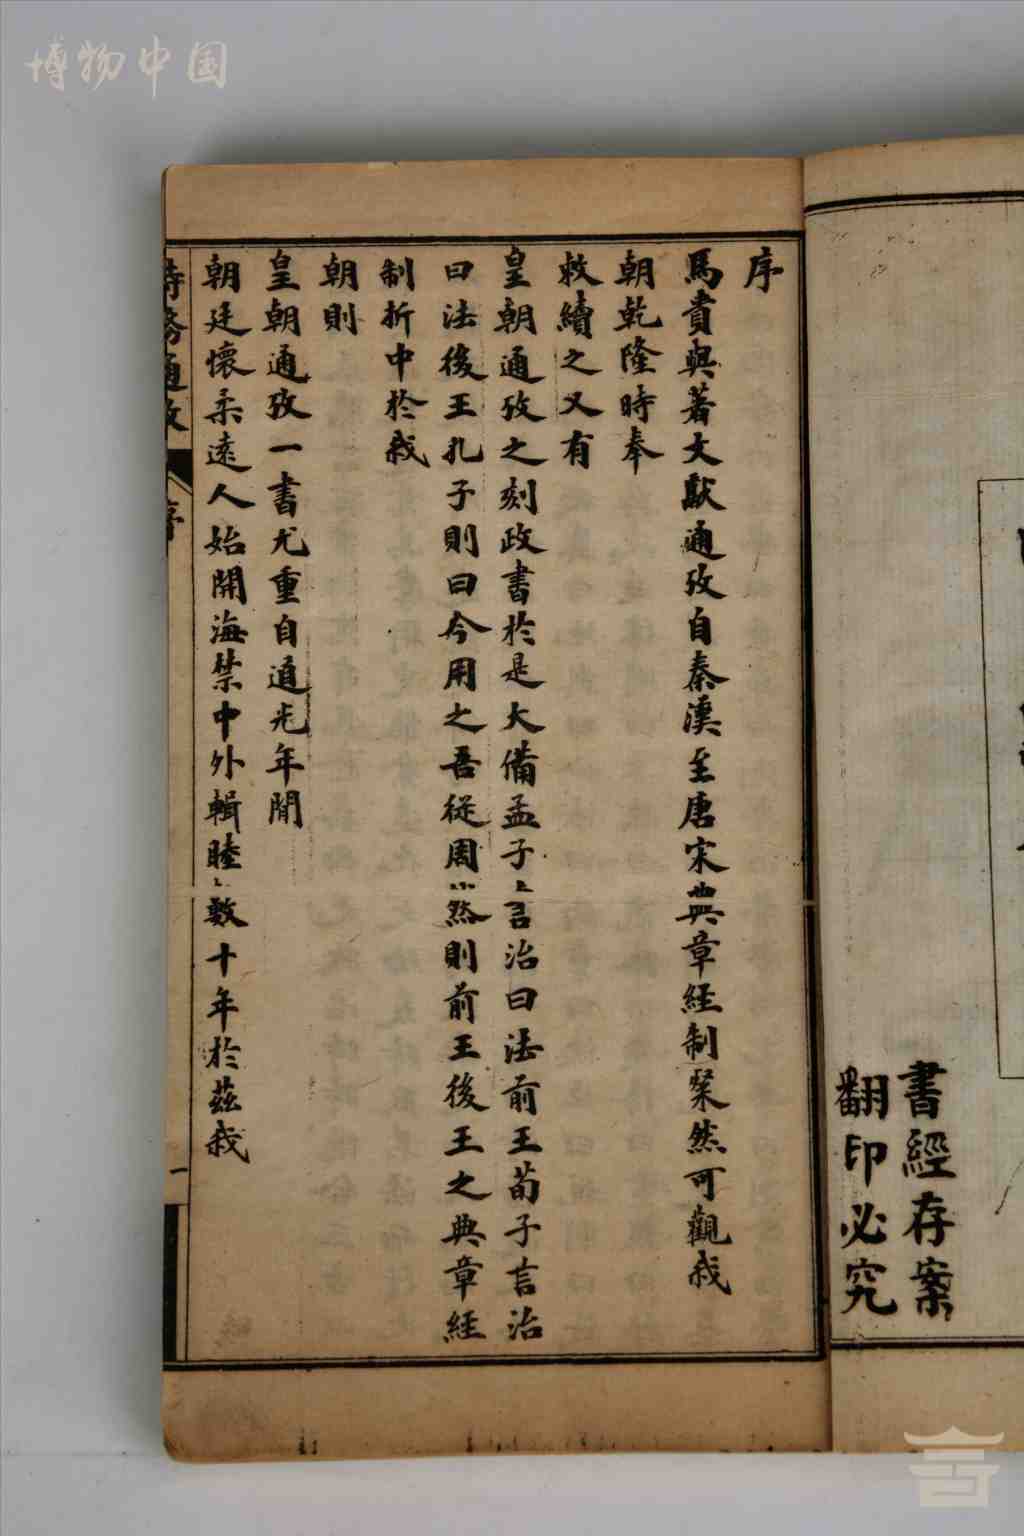 博物中国
書經存案
翻印必究
序
馬貴與著文獻通攷自秦漢至唐宋典章經制粲然可觀我
朝乾隆時奉
敕續之又有
皇朝通攷之刻政書於是大備孟子言治曰法前王荀子言治
曰法後王孔子則曰今用之吾從周然則前王後王之典章經
制折中於我
朝則
皇朝通攷一書尤重自道光年間
朝廷懷柔遠人始開海禁中外輯睦數十年於茲我
時務通攷
序
一